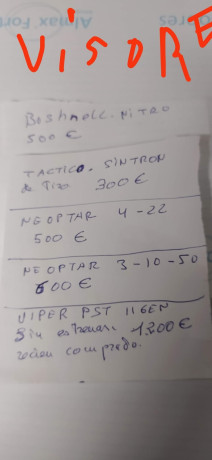 Almax Fort
VISORE
Boshnell. NITRO
500 €
TACTICO. SINTRON
de Tiro 300€
NEOPTAR 4-22
500 €
NEOPTAR 3-10-50
600 €
VIPER PST IIGEN
Sin estrenar. 1200€
recien comprado.